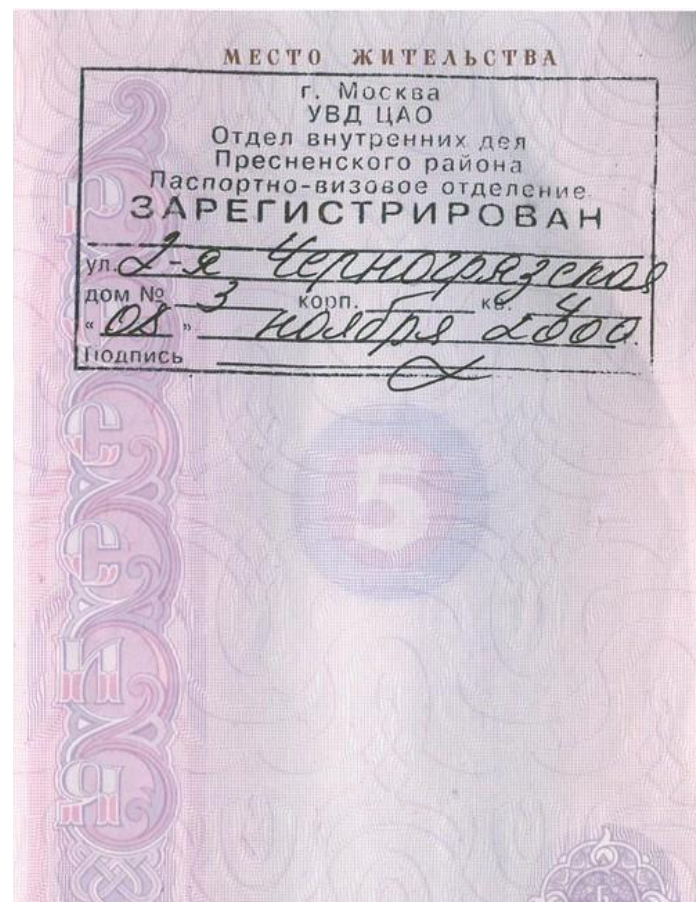 МЕСТО ЖИТЕЛЬСТВА
г. Москва
УВД ЦАО
Отдел внутренних дел
Пресненского района
Паспортно-визовое отделение
ЗАРЕГИСТРИРОВАН
ул. 2-я Черногрязская
дом № 3 корп. - кв. 4
"08" ноября 2000.
Подпись
5